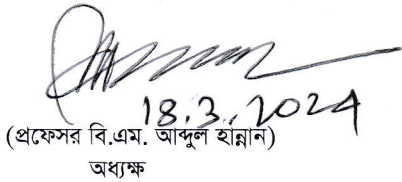 18.3.2024
(প্রফেসর বি.এম. আব্দুল হান্নান)
অধ্যক্ষ